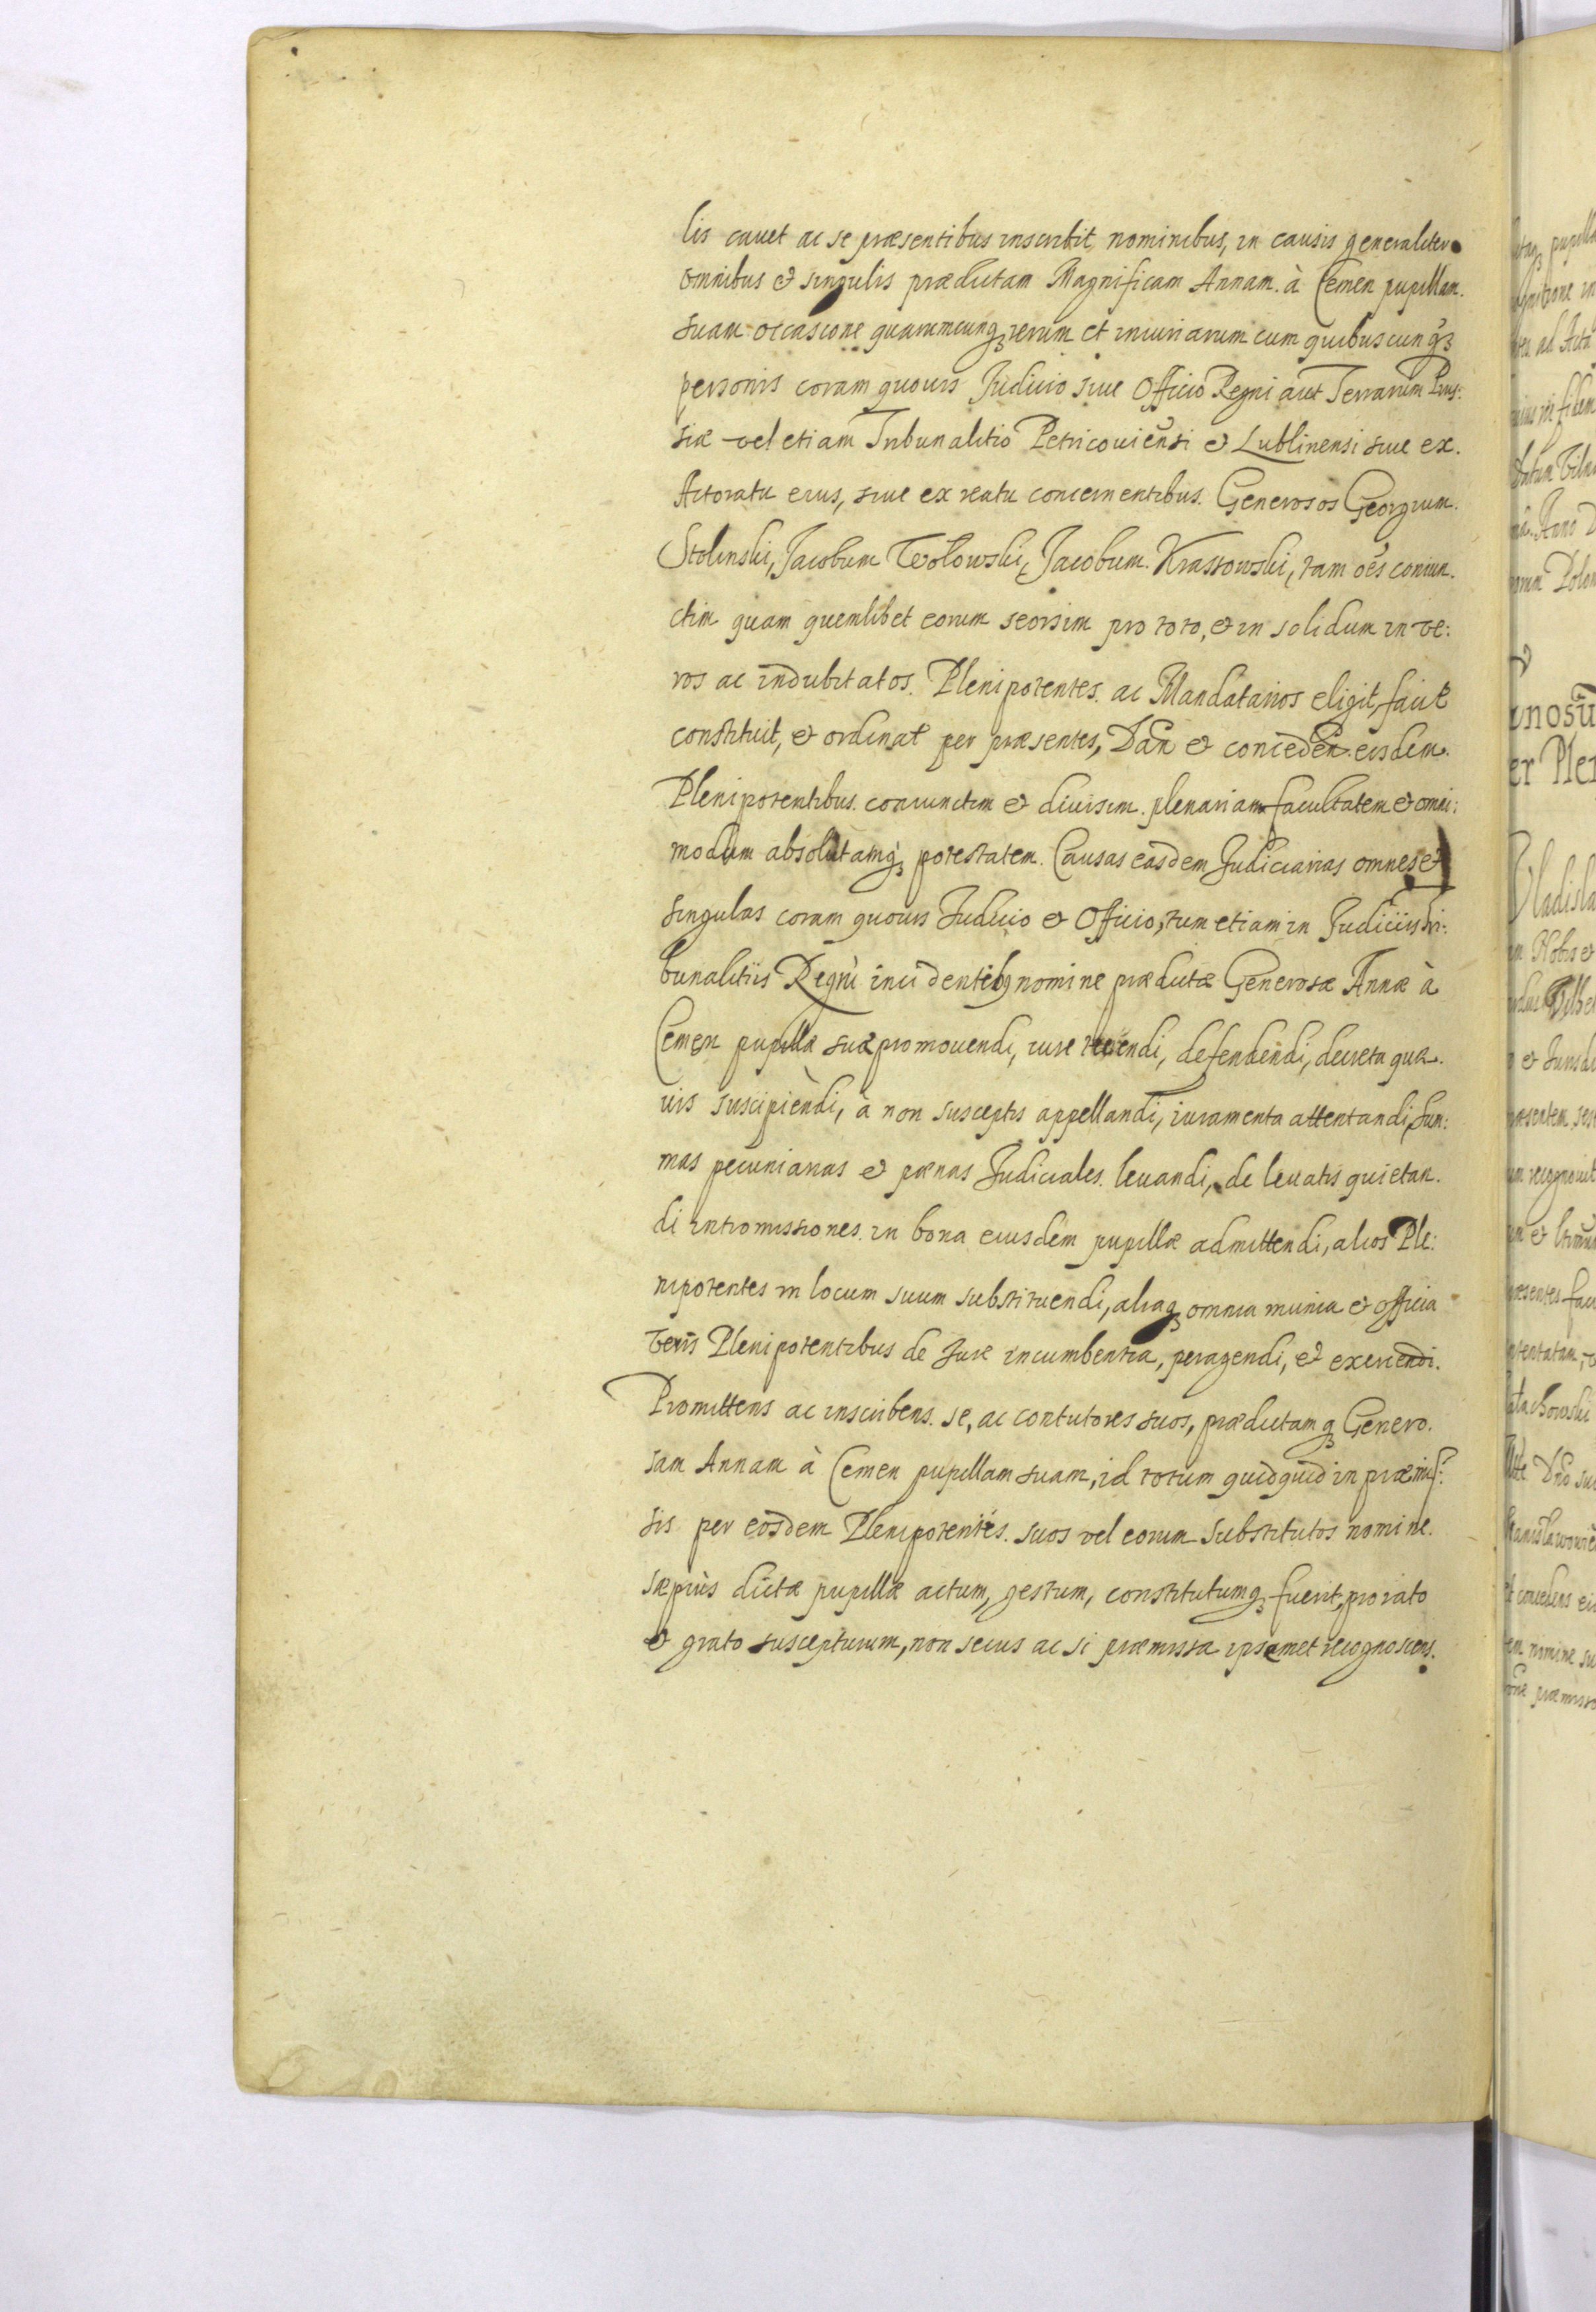 lis cauet ac se præsentibus inscribit, nominibus, in causis generaliter
omnibus et singulis prædictam Magnificam Annam à Cemen pupillam.
suam occasione quarumcunqꝫ rerum et iniuriarum cum quibuscunqꝫ
personis coram quouis Judicio siue Officio Regni aut Terrarum Prus:
siæ vel etiam Tribunalitio Petricouiensi et Lublinensi siue ex.
Actoratu eius, siue ex reatu concernentibus. Generosos Georgium.
Stolinski, Jacobum Wolowski, Jacobum Krassowski, tam oēs coniun.
ctim quam quemlibet eorum seorsim pro toto, et in solidum in ve:
ros ac indubitatos. Plenipotentes ac Mandatarios eligit, facit
constituit, et ordinat per præsentes, Dan̄ et conceden̄ eisdem.
Plenipotentibus coniunctim et diuisim plenariam facultatem et omni:
modam absolutamqꝫ potestatem. Causas easdem Judiciarias omnes et
singulas coram quouis Judicio et Officio, tum etiam in Judicijs Tri:
bunalitijs Regni incidentibꝫ nomine prædictæ Generosæ Annæ à
Cemen pupillæ suæ promouendi, iure defendendi, decreta quæ.
uis suscipiendi, à non susceptis appellandi, iuramenta attentandi, Sum:
mas pecuniarias et pænas Judiciales leuandi, de leuatis quietan.
di intromissiones in bona eiusdem pupillæ admittendi, alios Ple:
nipotentes in locum suum substituendi, aliaqꝫ omnia munia et officia
veris Plenipotentibus de Jure incumbentia, peragendi, et exercendi.
Promittens ac inscribens se, ac contutores suos, prædictamqꝫ Genero.
sam Annam à Cemen pupillam suam, id totum quidquid in præmis:
sis per eosdem Plenipotentes suos vel eorum Substitutos nomine.
sæpiùs dictæ pupillæ actum, gestum, constitutumqꝫ fuerit, pro rato
et grato suscepturum, non secus ac si præmissa ipsamet recognoscens.